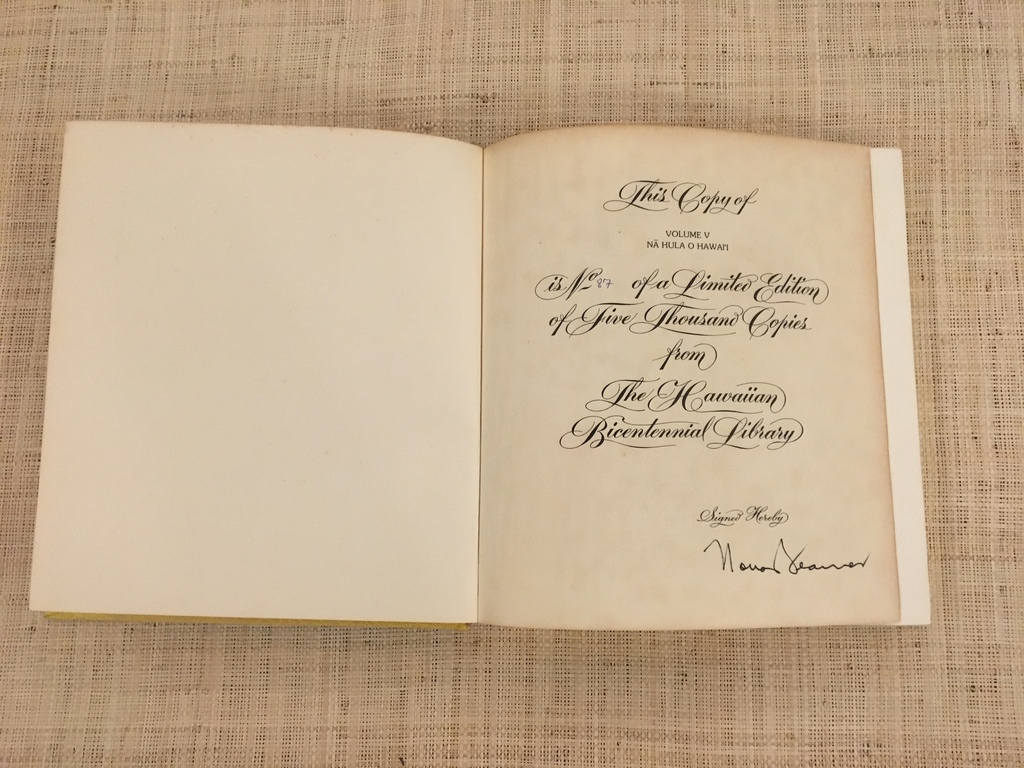 This Copy of
VOLUME V
NĀ HULA O HAWAI'I
is No 87 of a Limited Edition
of Five Thousand Copies
from
The Hawaiian
Bicentennial Library
Signed Hereby
Nona Beamer